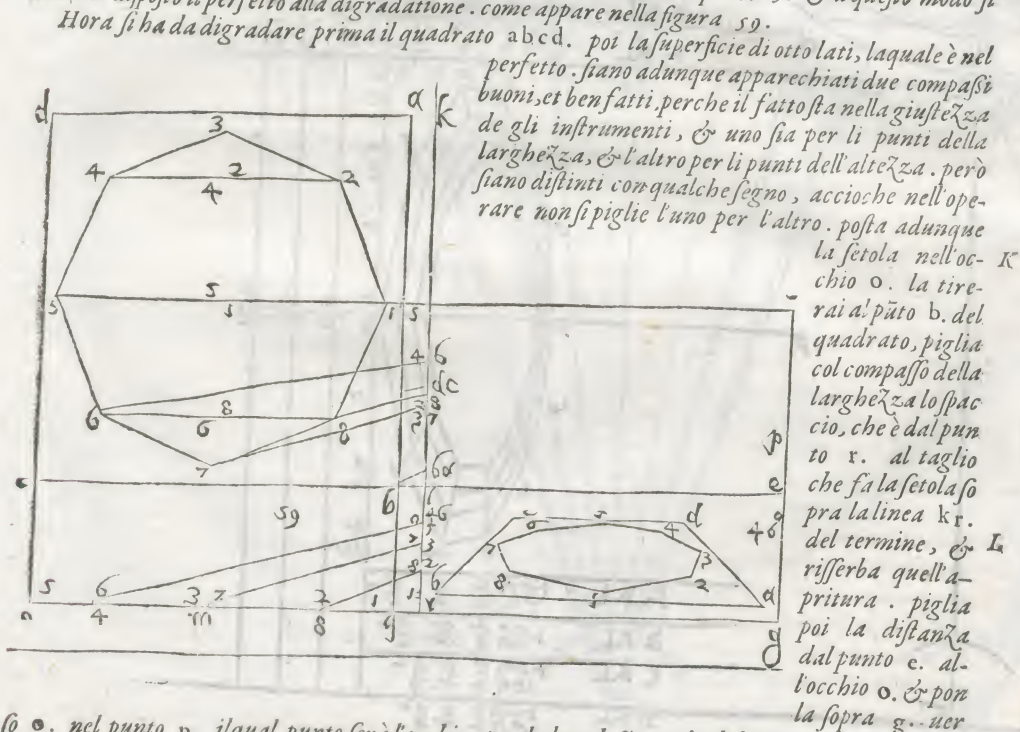 disposto il perfetto alla digradatione. come appare nella figura 59.
Hora si ha da digradare prima il quadrato abcd. poi la superficie di otto lati, laquale è nel
perfetto. siano adunque apparechiati due compassi
buoni, et ben fatti, perche il fatto sta nella giusteZza
de gli instrumenti, & uno sia per li punti della
larghezza, & l'altro per li punti dell'altezza. però
siano distinti con qualche segno, accioche nell'ope-
rare non si piglie l'uno per l'altro. posta adunque
la setola nell'oc- K
chio o. la tire-
rai al pūto b. del
quadrato, piglia
col compasso della
larghezza lo spac
cio, che è dal pun
to r. al taglio
che fa la setola so
pra la linea kr.
del termine, & L
risserba quell'a-
pritura. piglia
poi la distanza
dal punto e. al-
l'occhio o. & pon
la sopra g. uer
so o. nel punto p. ilqual punto
d
a
k
3
4
2
2
4
5
5
1
1
5
4
6
8
6
6
8
7
b
6
59
5
6
4
3
m
2
8
1
g
e
46
d
6
5
4
3
2
1
8
7
a
g